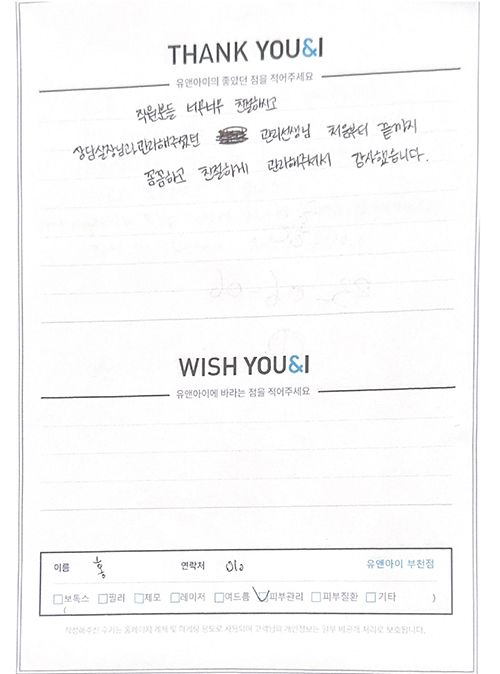 THANK YOU&I
유앤아이의 좋았던 점을 적어주세요
직원분들 너무너무 친절하시고
상담실장님과 관리해주셨던 관리선생님 처음부터 끝까지
꼼꼼하고 친절하게 관리해주셔서 감사했습니다.
WISH YOU&I
유앤아이에 바라는 점을 적어주세요
이름 홍 연락처 010 유앤아이 부천점
보톡스 필러 제모 레이저 여드름 피부관리 피부질환 기타 )
(
작성해주신 수기는 홈페이지 게재 및 마케팅 용도로 사용되며 고객님의 개인정보는 일부 비공개 처리로 보호됩니다.